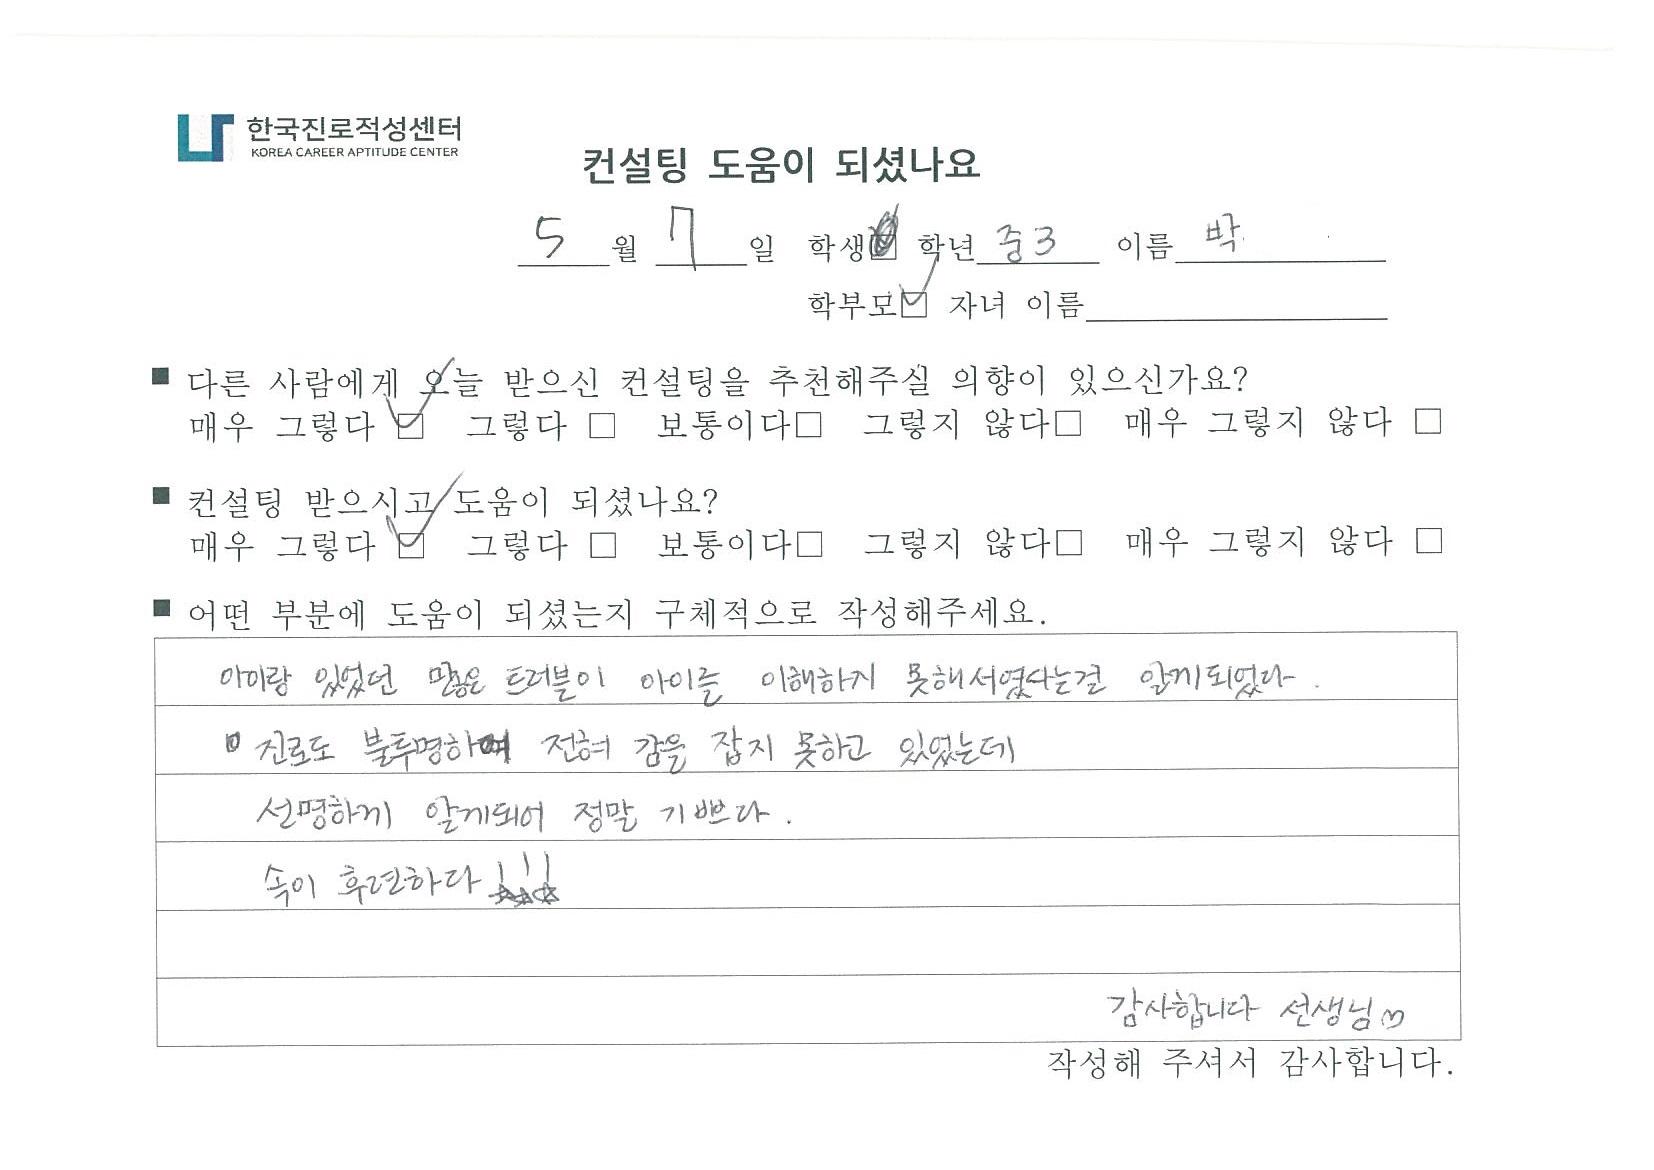 한국진로적성센터
KOREA CAREER APTITUDE CENTER
컨설팅 도움이 되셨나요
5 월 7 일 학생☑ 학년 중3 이름 박
학부모☑ 자녀 이름
■ 다른 사람에게 오늘 받으신 컨설팅을 추천해주실 의향이 있으신가요?
매우 그렇다 ☑ 그렇다 □ 보통이다□ 그렇지 않다□ 매우 그렇지 않다 □
■ 컨설팅 받으시고 도움이 되셨나요?
매우 그렇다 ☑ 그렇다 □ 보통이다□ 그렇지 않다□ 매우 그렇지 않다 □
■ 어떤 부분에 도움이 되셨는지 구체적으로 작성해주세요.
아이랑 있었던 많은 트러블이 아이를 이해하지 못해서였다는걸 알게되었다.
진로도 불투명하여 전혀 감을 잡지 못하고 있었는데
선명하게 알게되어 정말 기쁘다.
속이 후련하다!!!
감사합니다 선생님♡
작성해 주셔서 감사합니다.